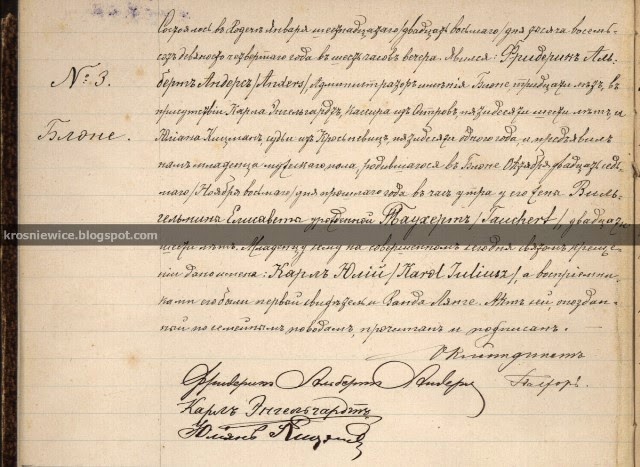 Состоялось въ Кодечъ Января шестнадцатаго /двадцать восьмаго/ дня тысяча восемь-
№ 3. сотъ девяносто четвертаго года въ шесть часовъ вечера. Явился: Фридерикъ Аль-
бертъ Андерсъ /Anders/, Администраторъ имѣнія Блоне тридцати лѣтъ, въ
присутствіи Карла Энгельгардъ, Кассира изъ Островъ, пятидесяти шести лѣтъ, и
Блоне. Юліана Кицманъ, судьи изъ Кросьневицъ, пятидесяти одного года, и предъявилъ
намъ младенца мужескаго пола, родившагося въ Блоне Октября двадцать седь-
маго /Ноября восьмаго/ дня прошлаго года въ часъ утра у его жены Виль-
гельмины Елисаветы урожденной Таухертъ /Tauchert/, двадцати
krosniewice.blogspot.com
шести лѣтъ. Младенцу сему на совершенномъ сегодня святомъ креще-
ніи дано имена: Карлъ Юлій /Karol Juliusz/, а воспріемни-
ками его были первый свидѣтель и Ванда Лянге. Актъ сей, опоздан-
ный по семейнымъ поводамъ, прочитанъ и подписанъ.
Фридерикъ Албертъ Андерсъ
Карлъ Энгельгардтъ
Юліянъ Кицманъ